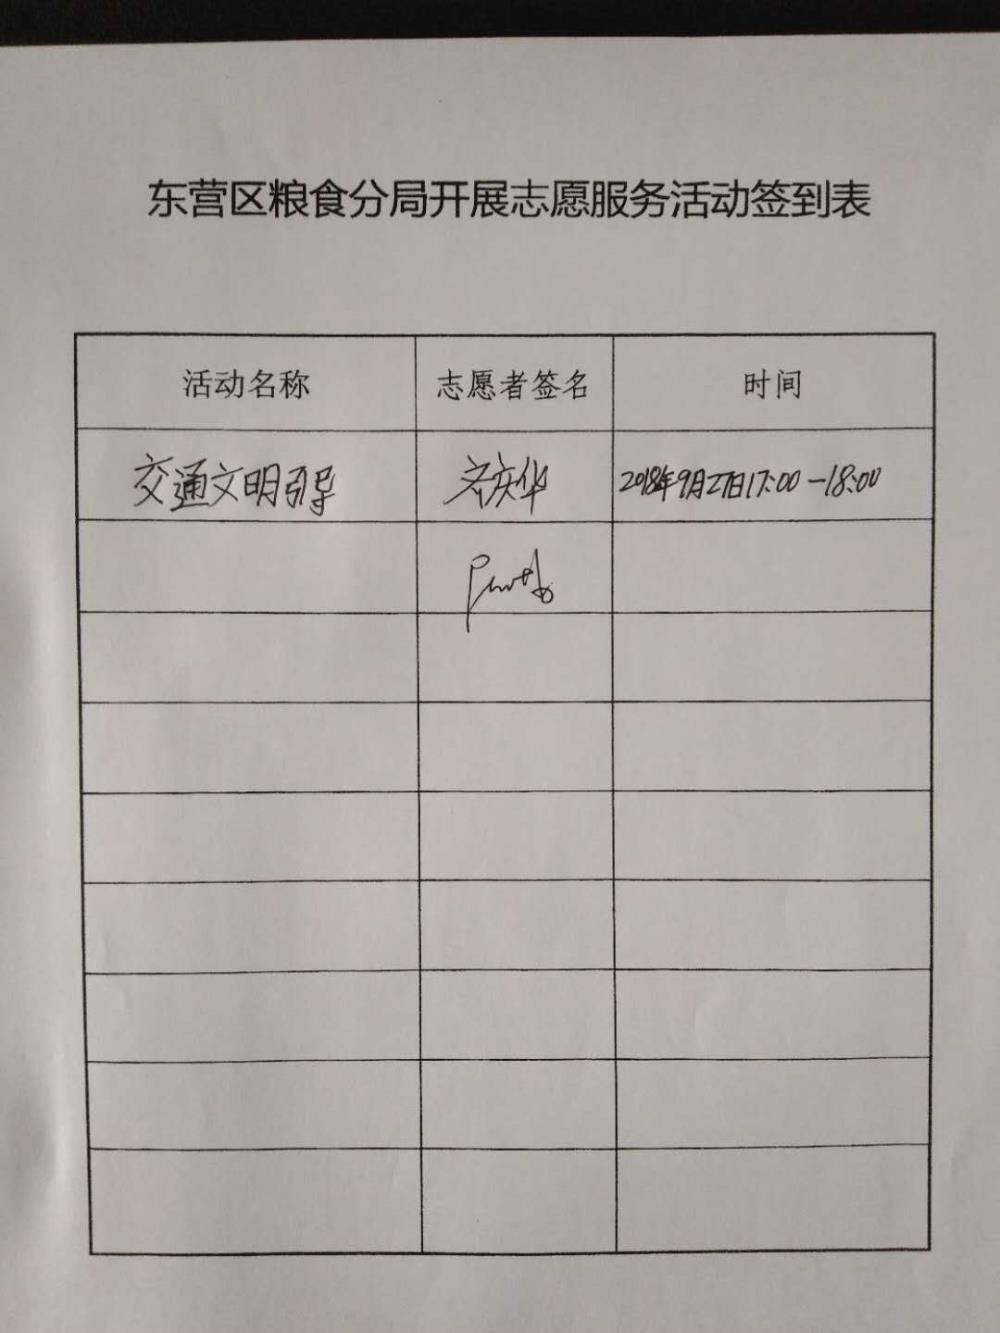 东营区粮食分局开展志愿服务活动签到表
活动名称 志愿者签名 时间
交通文明引导 庆华 2018年9月27日17:00-18:00